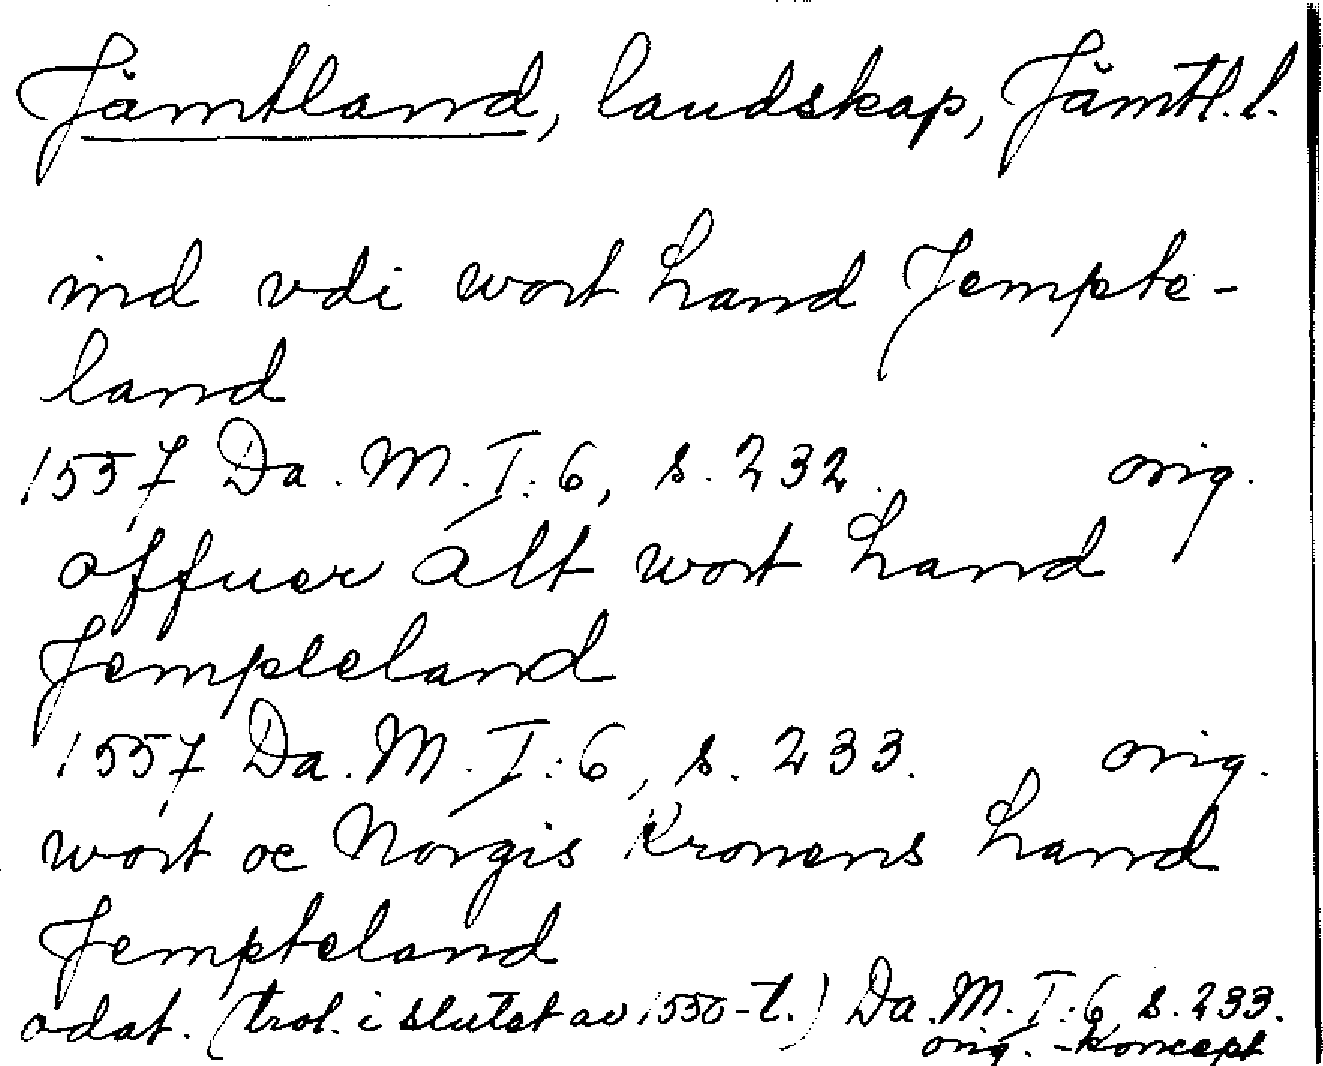 Jämtland, landskap, Jämtl. l.
ind vdi wort Land Jempte-
land
1557 Da. M. I: 6, s. 232. orig.
offuer alt wort Land
Jempteland
1557 Da. M. I: 6, s. 233. orig.
wort oc Norgis Kronens Land
Jempteland
odat. (trol. i slutet av 1550-t.) Da. M. I: 6 s. 233.
orig. -koncept